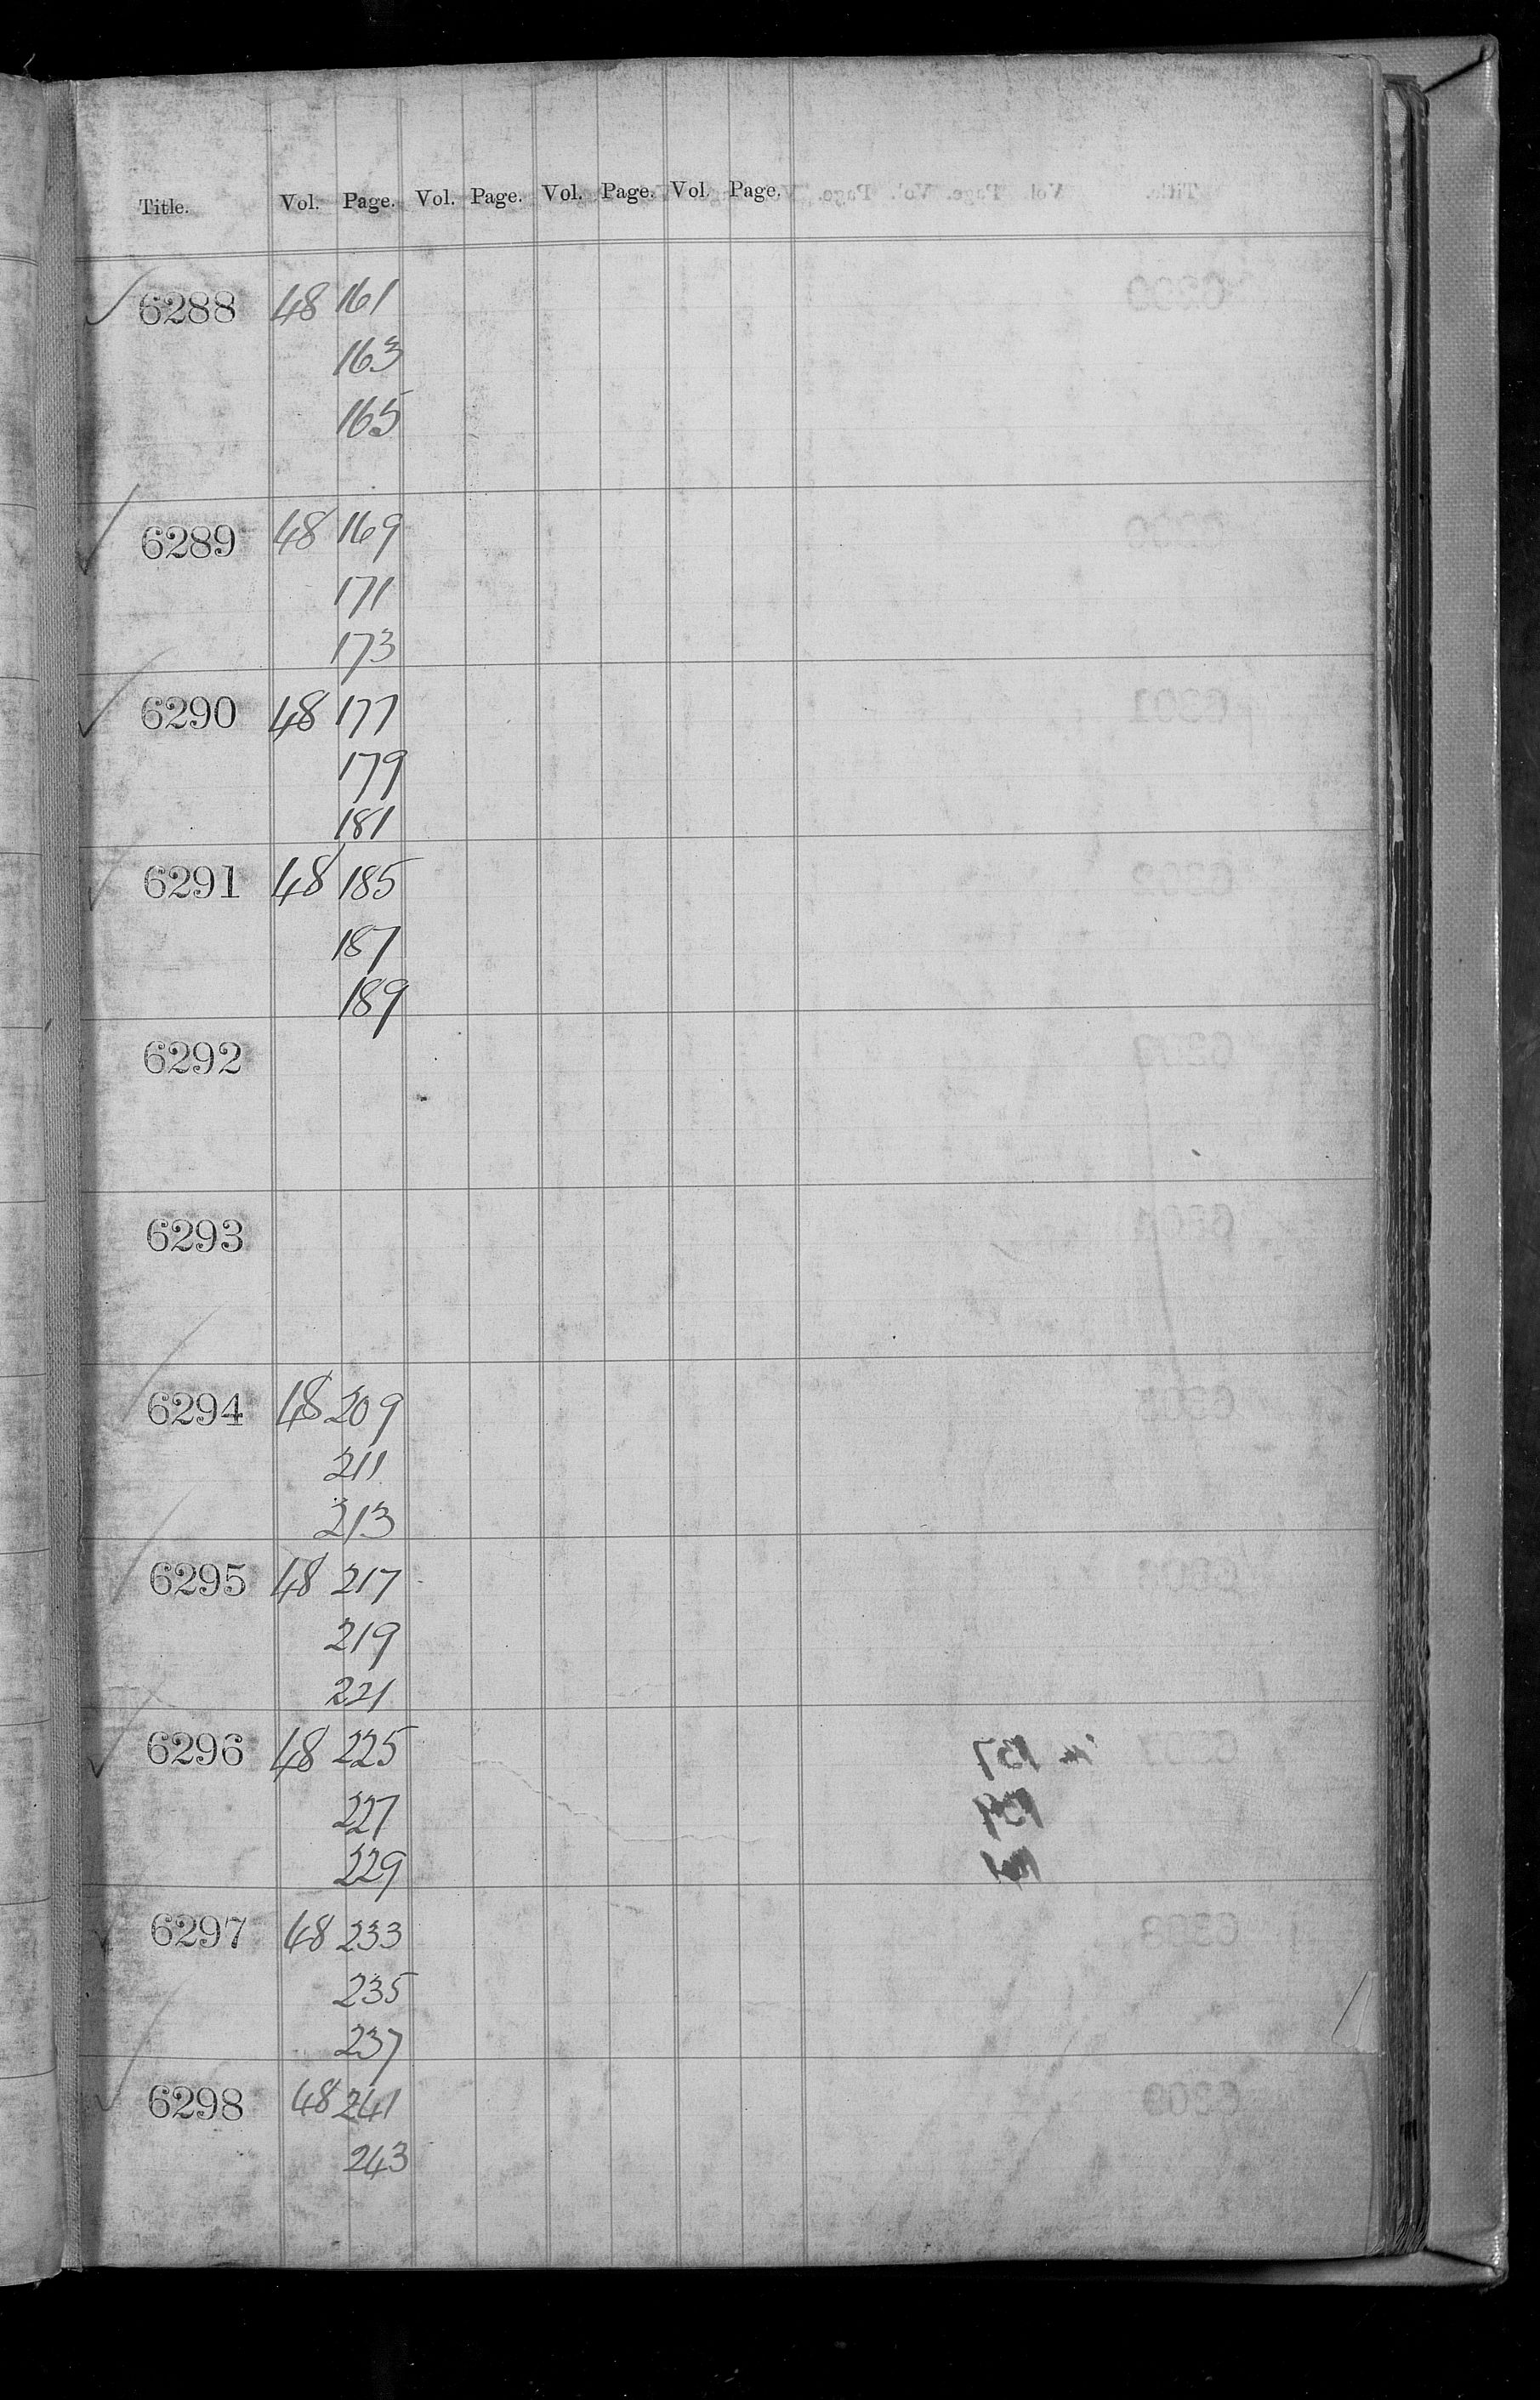 Title. Vol. Page. Vol. Page. Vol. Page. Vol. Page.
6288 48 161
163
165
6289 48 169
171
173
6290 48 177
179
181
6291 48 185
187
189
6292
6293
6294 48 209
211
213
6295 48 217
219
221
6296 48 225
227
229
6297 48 233
235
237
6298 48 241
243